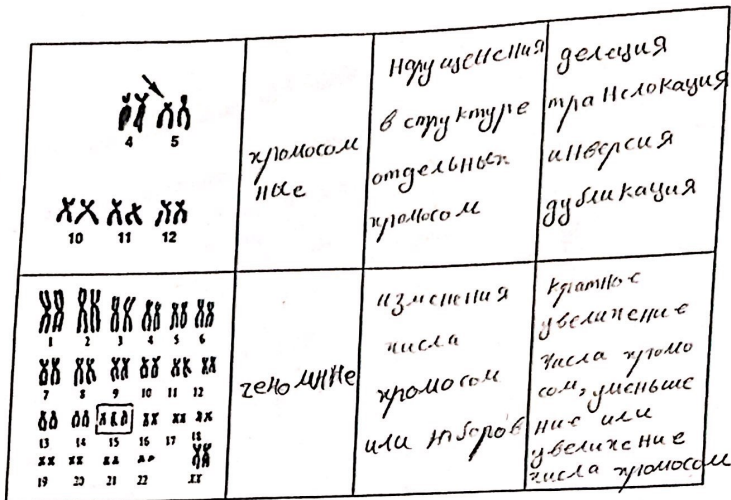 4 5
10 11 12
хромосом
ные
нарушения
в структуре
отдельных
хромосом
делеция
транслокация
инверсия
дубликация
1 2 3 4 5 6
7 8 9 10 11 12
13 14 15 16 17 18
19 20 21 22 XX
геномнне
изменения
числа
хромосом
или наборов
кратное
увеличение
числа хромо
сом, уменьше
ние или
увеличение
числа хромосом